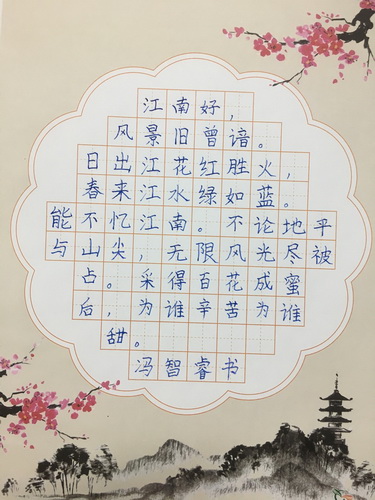 江南好，
风景旧曾谙。
日出江花红胜火，
春来江水绿如蓝。
能不忆江南。不论地平
与山尖，无限风光尽被
占。采得百花成蜜
后，为谁辛苦为谁
甜。
冯智睿书